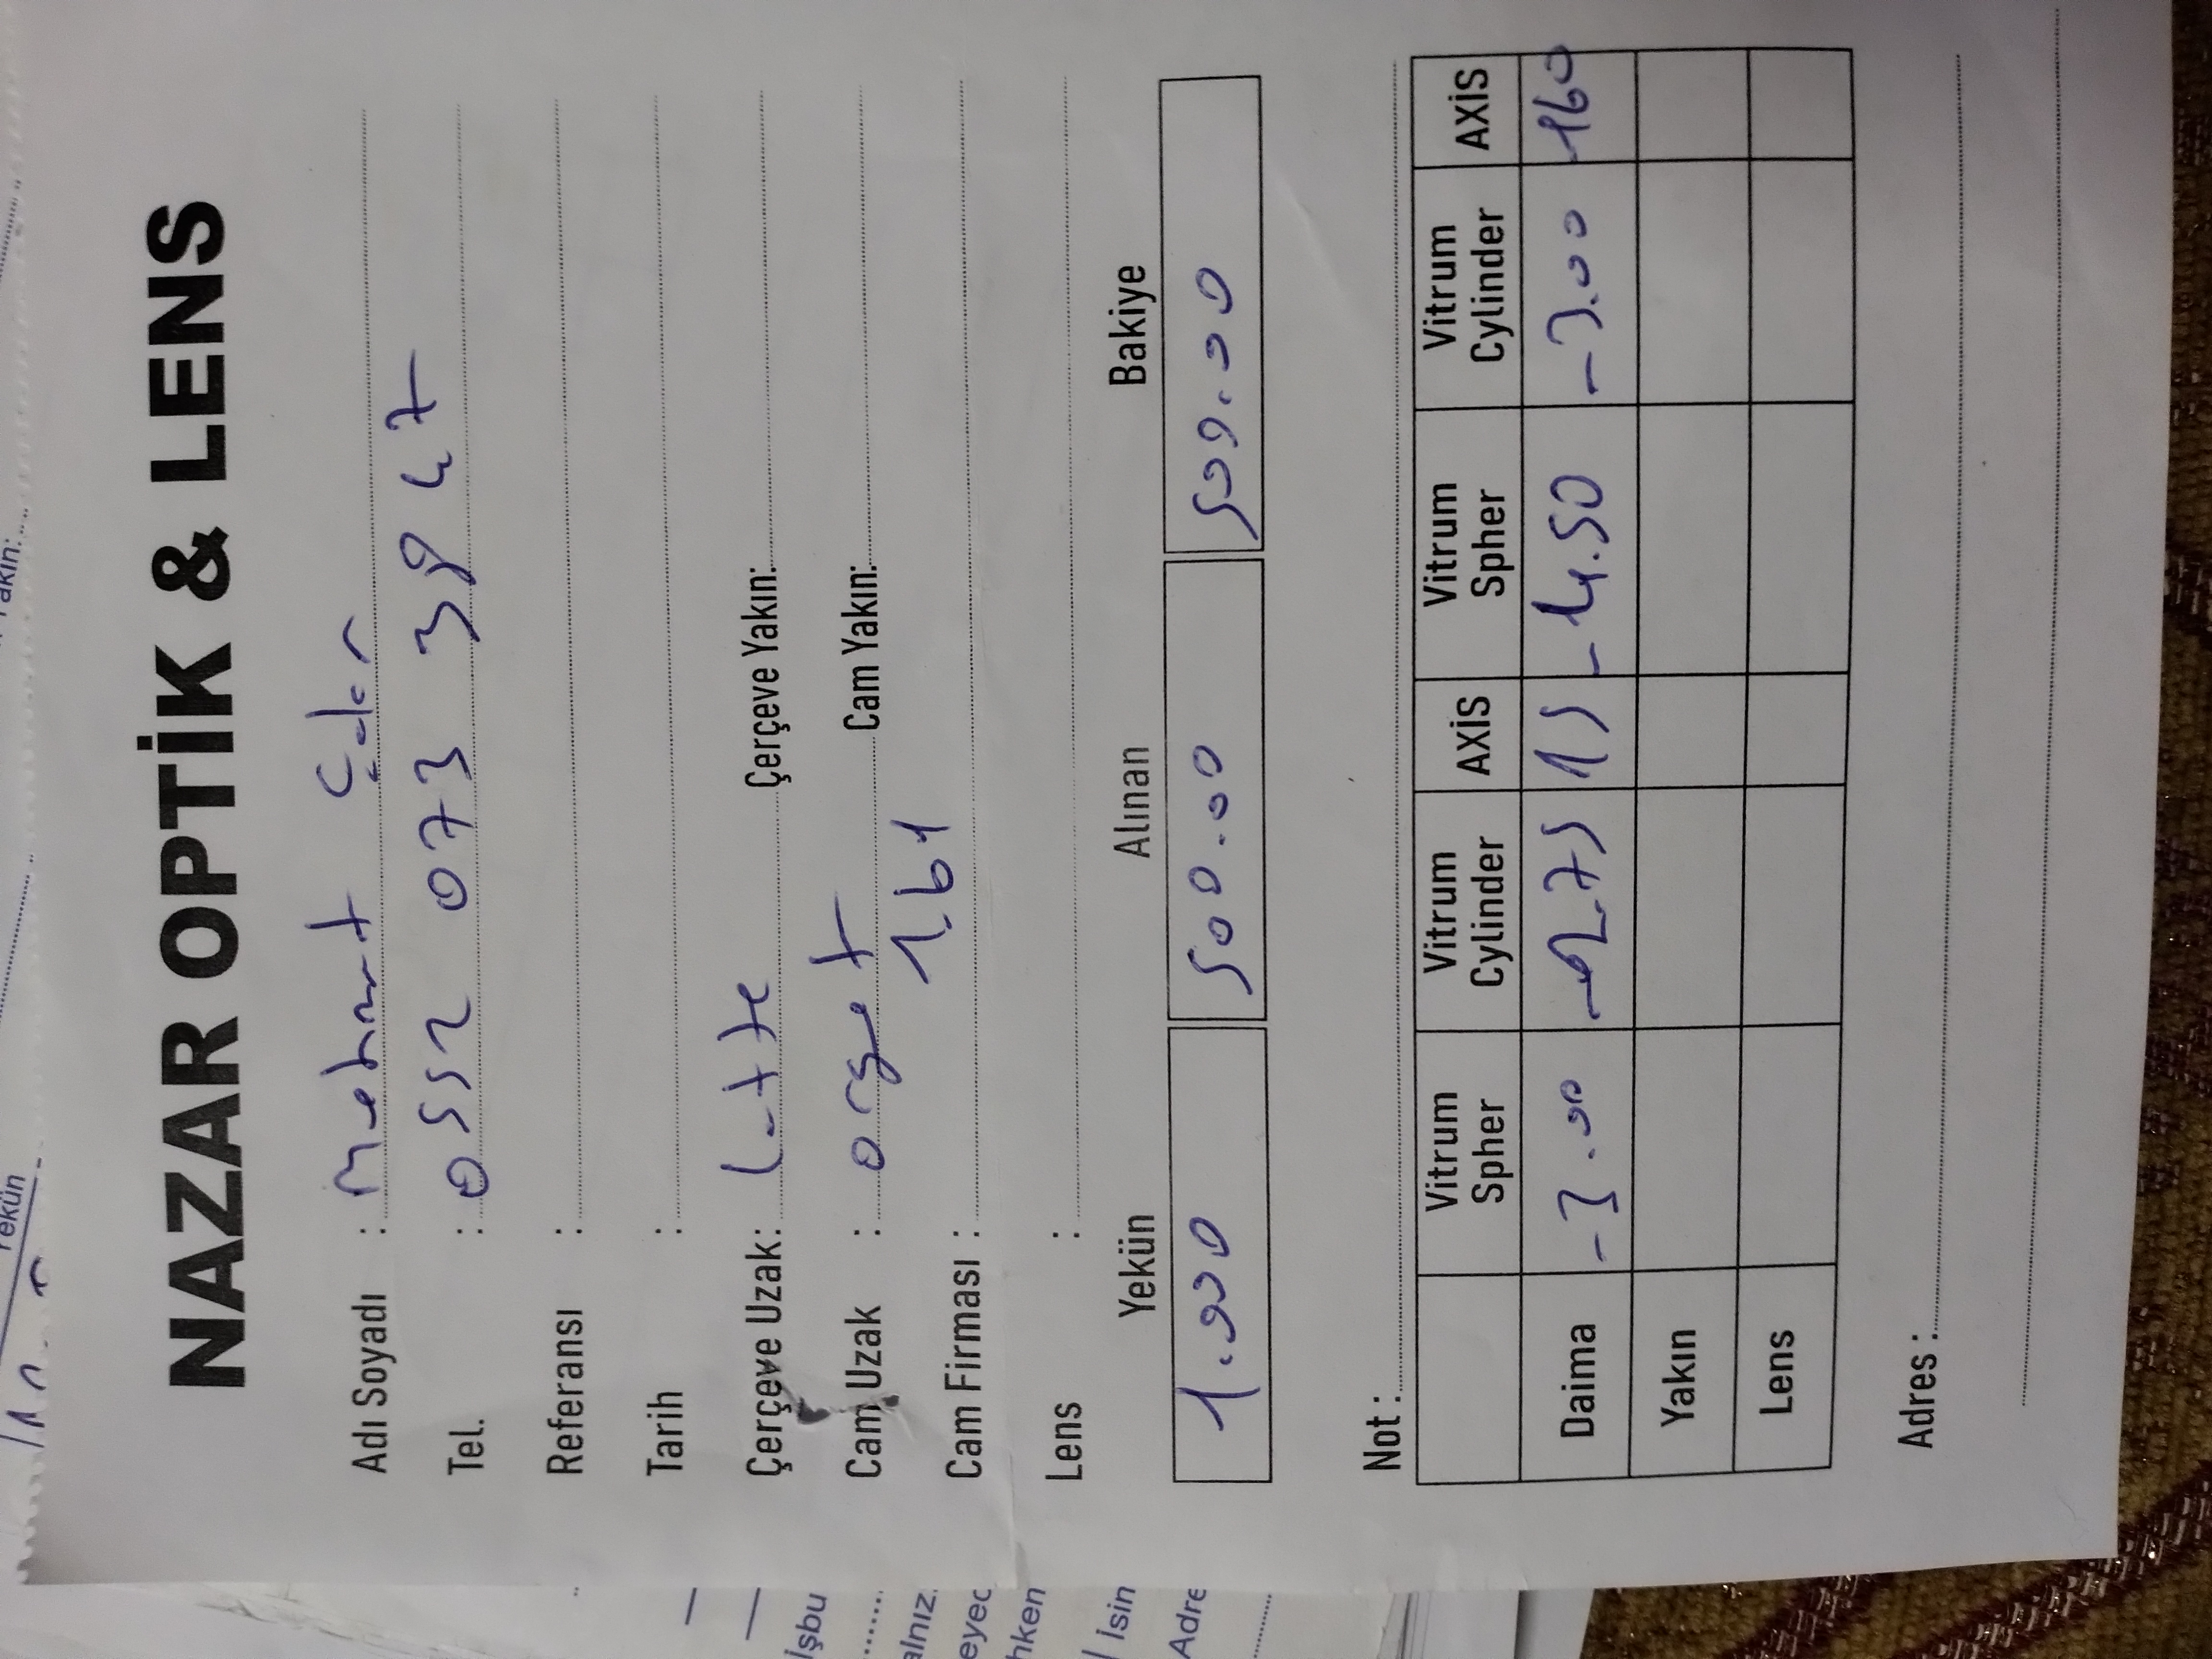 NAZAR OPTİK & LENS
Adı Soyadı : Mehmet Çakır
Tel. : 0552 073 39 47
Referansı :
Tarih :
Çerçeve Uzak: Çerçeve Yakın:
Cam Uzak : Cam Yakın:
1.61
Cam Firması :
Lens :
Yekün Alınan Bakiye
1.000 500.00 500.00
Not :
Vitrum Spher Vitrum Cylinder AXİS Vitrum Spher Vitrum Cylinder AXİS
Daima -3.00 -2.75 15 -4.50 -3.00 160
Yakın
Lens
Adres :
Yekün
akın:
İşbu
alnız.
eyec
hken
İsin
Adre